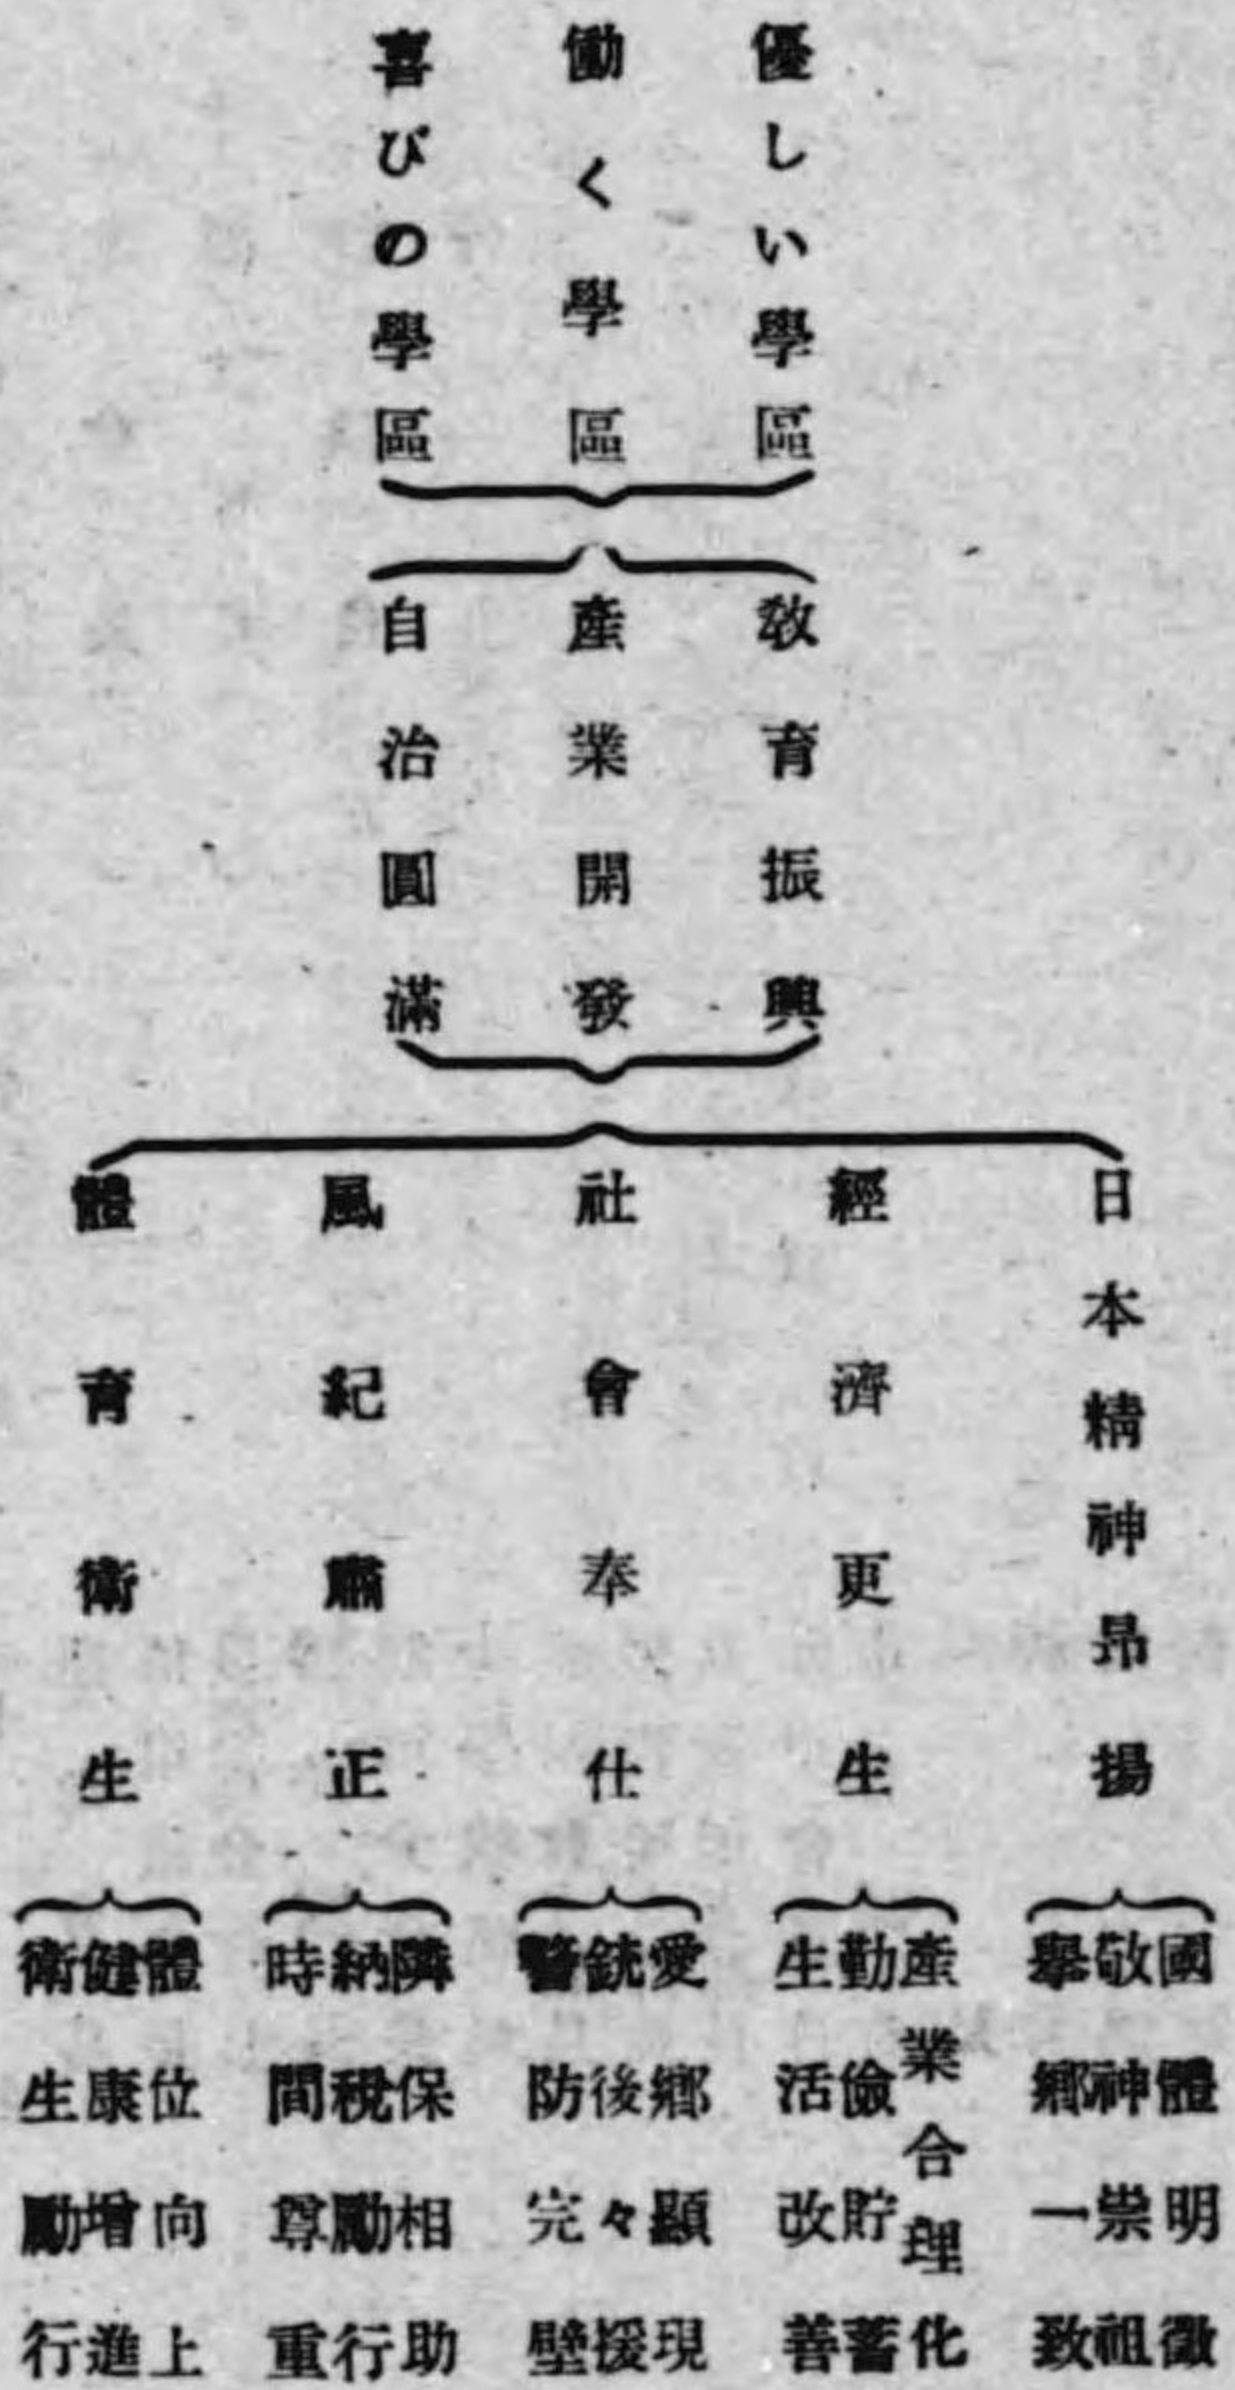 優しい學區
働く學區
喜びの學區
敎育振興
產業開發
自治圓滿
日本精神昂揚
經濟更生
社會奉仕
風紀肅正
體育衞生
國體明徵
敬神崇祖
擧鄕一致
產業合理化
勤儉貯蓄
生活改善
愛鄕顯現
銃後々援
警防完壁
隣保相助
納稅勵行
時間尊重
體位向上
健康增進
衞生勵行